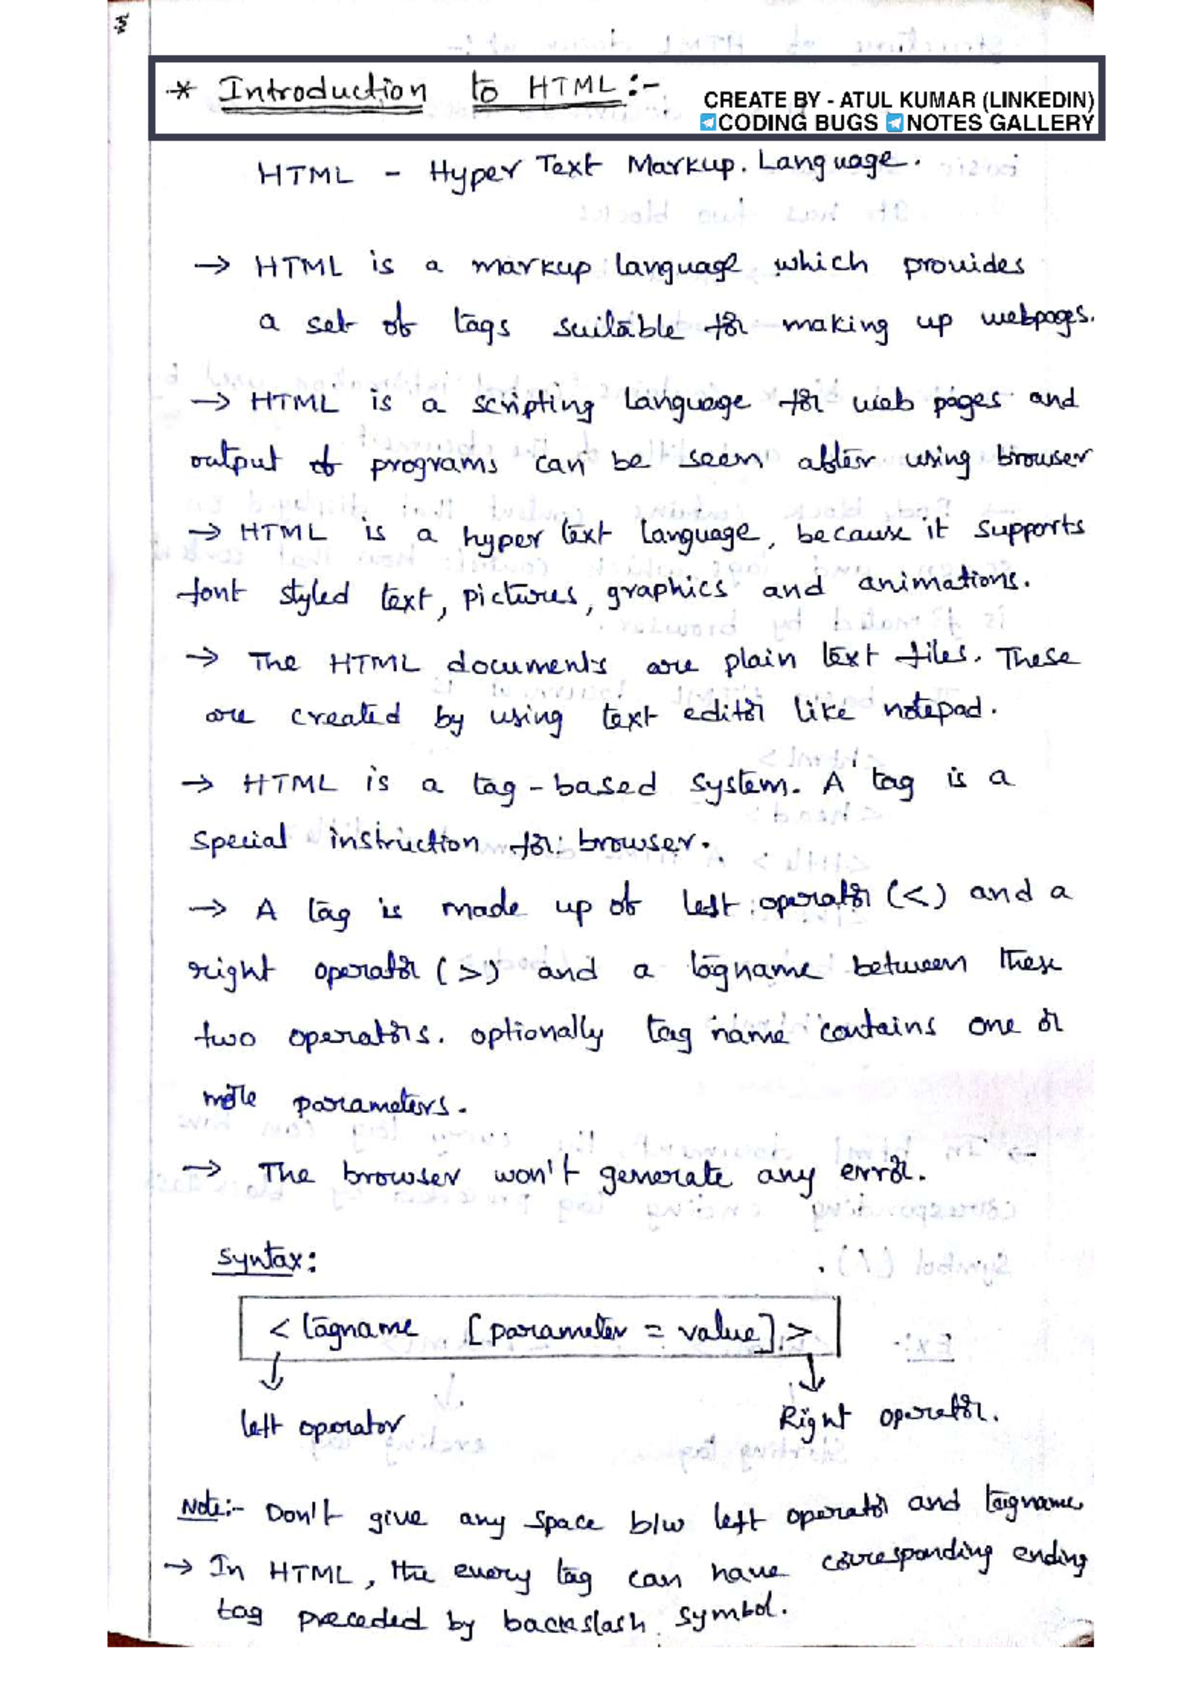 * Introduction to HTML:-
CREATE BY - ATUL KUMAR (LINKEDIN)
CODING BUGS NOTES GALLERY
HTML - Hyper Text Markup. Language.
→ HTML is a markup language which provides
a set of tags suitable for making up webpages.
→ HTML is a scripting language for web pages and
output of programs can be seem after using browser
→ HTML is a hyper text language, because it supports
font styled text, pictures, graphics and animations.
→ The HTML documents are plain text files. These
are created by using text editor like notepad.
→ HTML is a tag-based system. A tag is a
special instruction for browser.
→ A tag is made up of left operator (<) and a
right operator (>) and a tagname between these
two operators. optionally tag name contains one or
more parameters.
→ The browser won't generate any error.
syntax:
< tagname [parameter = value] >
left operator Right operator.
Note:- Don't give any space b/w left operator and tagname
→ In HTML, the every tag can have corresponding ending
tag preceded by backslash symbol.